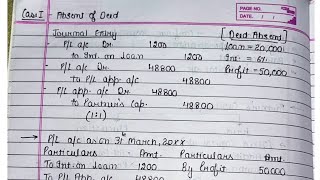 PAGE NO.
DATE: / /
Case I - Absent of Deed
Journal Entry [Deed Absent]
P/L a/c Dr. 1200 Loan = 20,000
to Int. on loan 1200 Int. = 6%
P/L a/c Dr. 48800 Profit = 50,000
to P/L app. a/c 48800
P/L app. a/c Dr. 48800
to Partner's Cap. 48800
(1:1)
P/L a/c as on 31st March, 20xx
Particulars Amt. Particulars Amt.
To Int. on Loan 1200 By Profit 50,000
To P/L App. a/c 48800